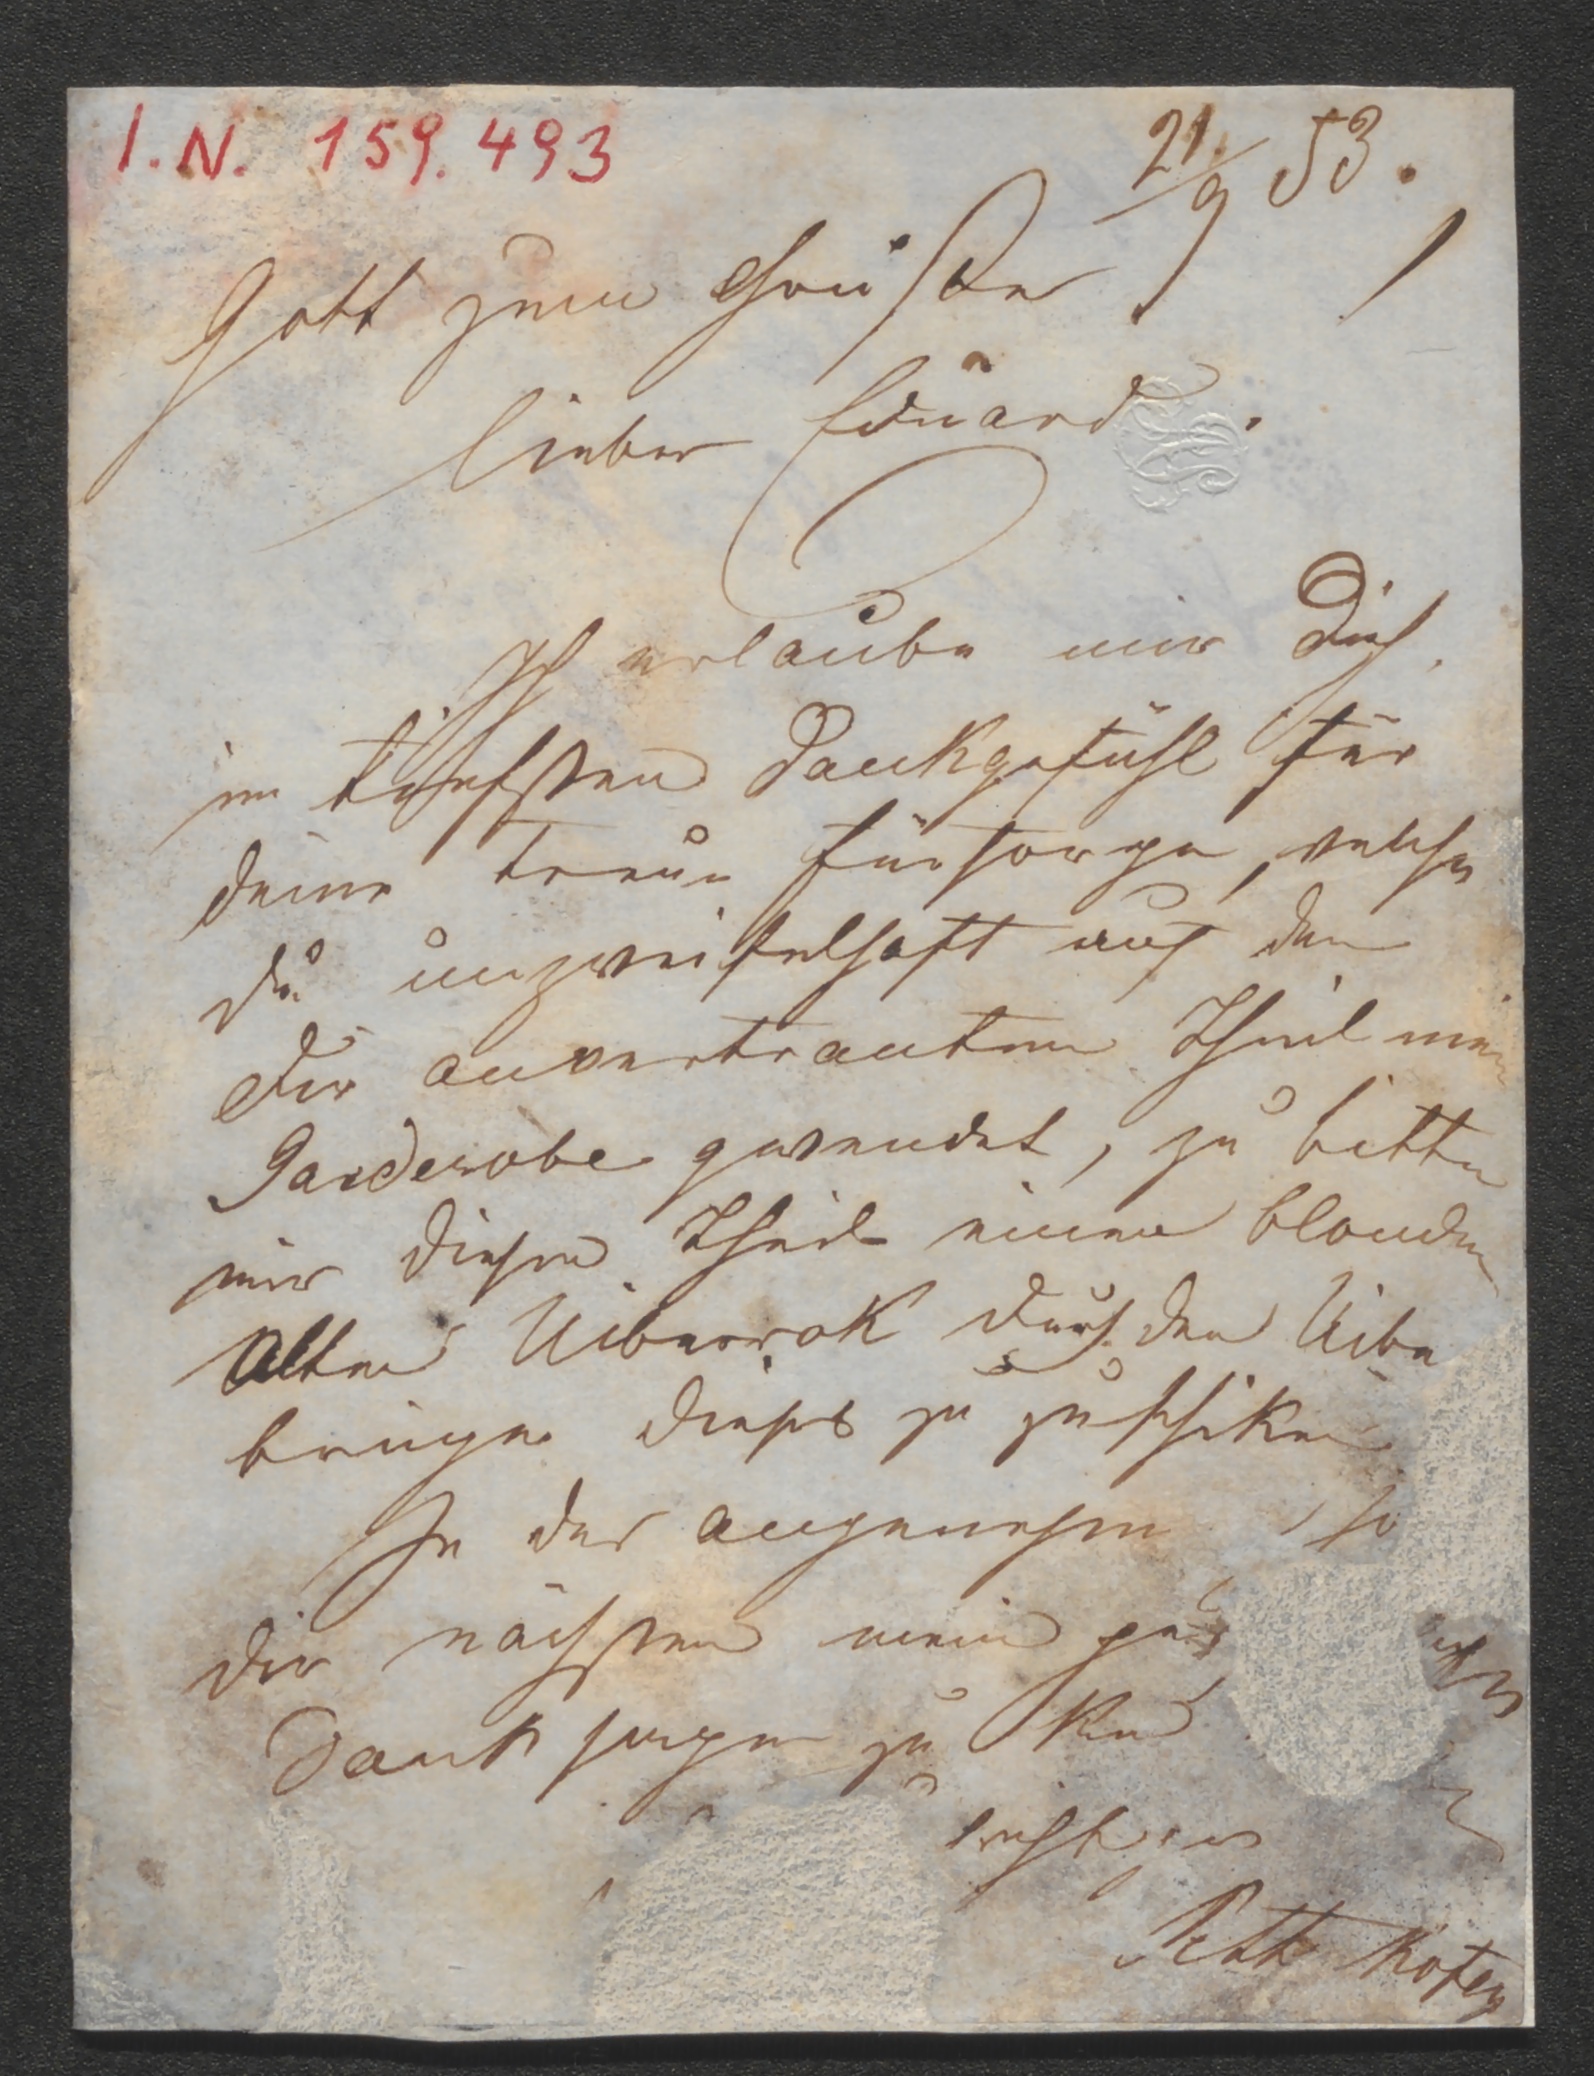 I.N. 159.493
21./9 53.
Gott zum Gruße!
lieber Eduard.
Ich erlaube mir Dich
im tiefsten Dankgefühl für
deine treue Fürsorge, welche
du unzweifelhaft auf den
Dir anvertrauten Theil mein
Garderobe gewendet, zu bitten
mir diesen Theil einen blonden
Alten Uiberrok durch den Uibe
bringer dieses zu zuschiken
In der angenehmen
dir nächstens mein
Dank sagen zu
Rettkofer